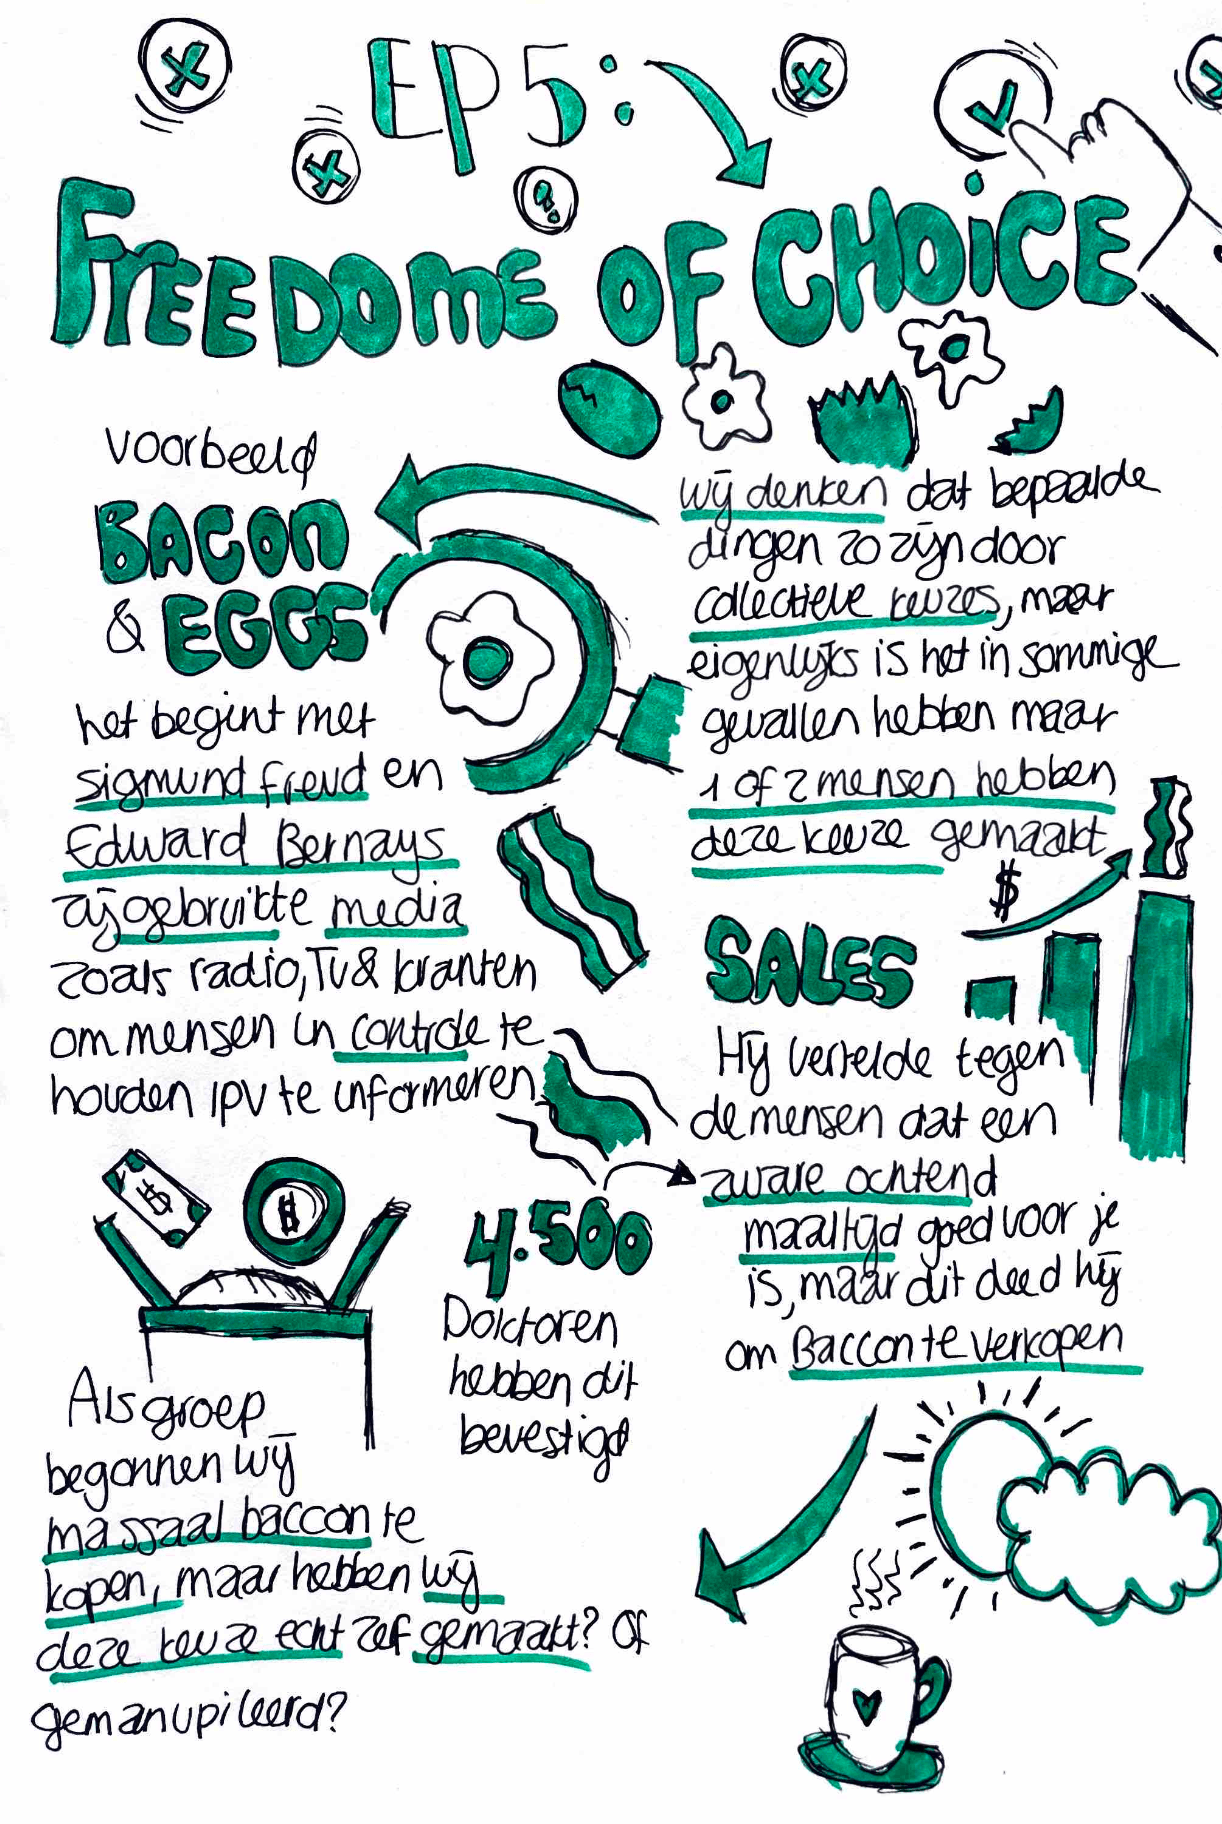 EP 5:
FREEDOME OF CHOICE
wij denken dat bepaalde
dingen zo zijn door
collectieve keuzes, maar
eigenlijks is het in sommige
gevallen hebben maar
1 of 2 mensen hebben
deze keuze gemaakt
voorbeeld
BACON
& EGGS
het begint met
sigmund freud en
Edward Bernays
zij gebruikte media
zoals radio, TV & kranten
om mensen in controle te
houden ipv te informeren
$
SALES
Hij vertelde tegen
de mensen dat een
zware ochtend
maaltijd goed voor je
is, maar dit deed hij
om Baccon te verkopen
4.500
Doktoren
hebben dit
bevestigd
$
$
Als groep
begonnen wij
massaal baccon te
kopen, maar hebben wij
deze keuze echt zelf gemaakt? Of
gemanupileerd?